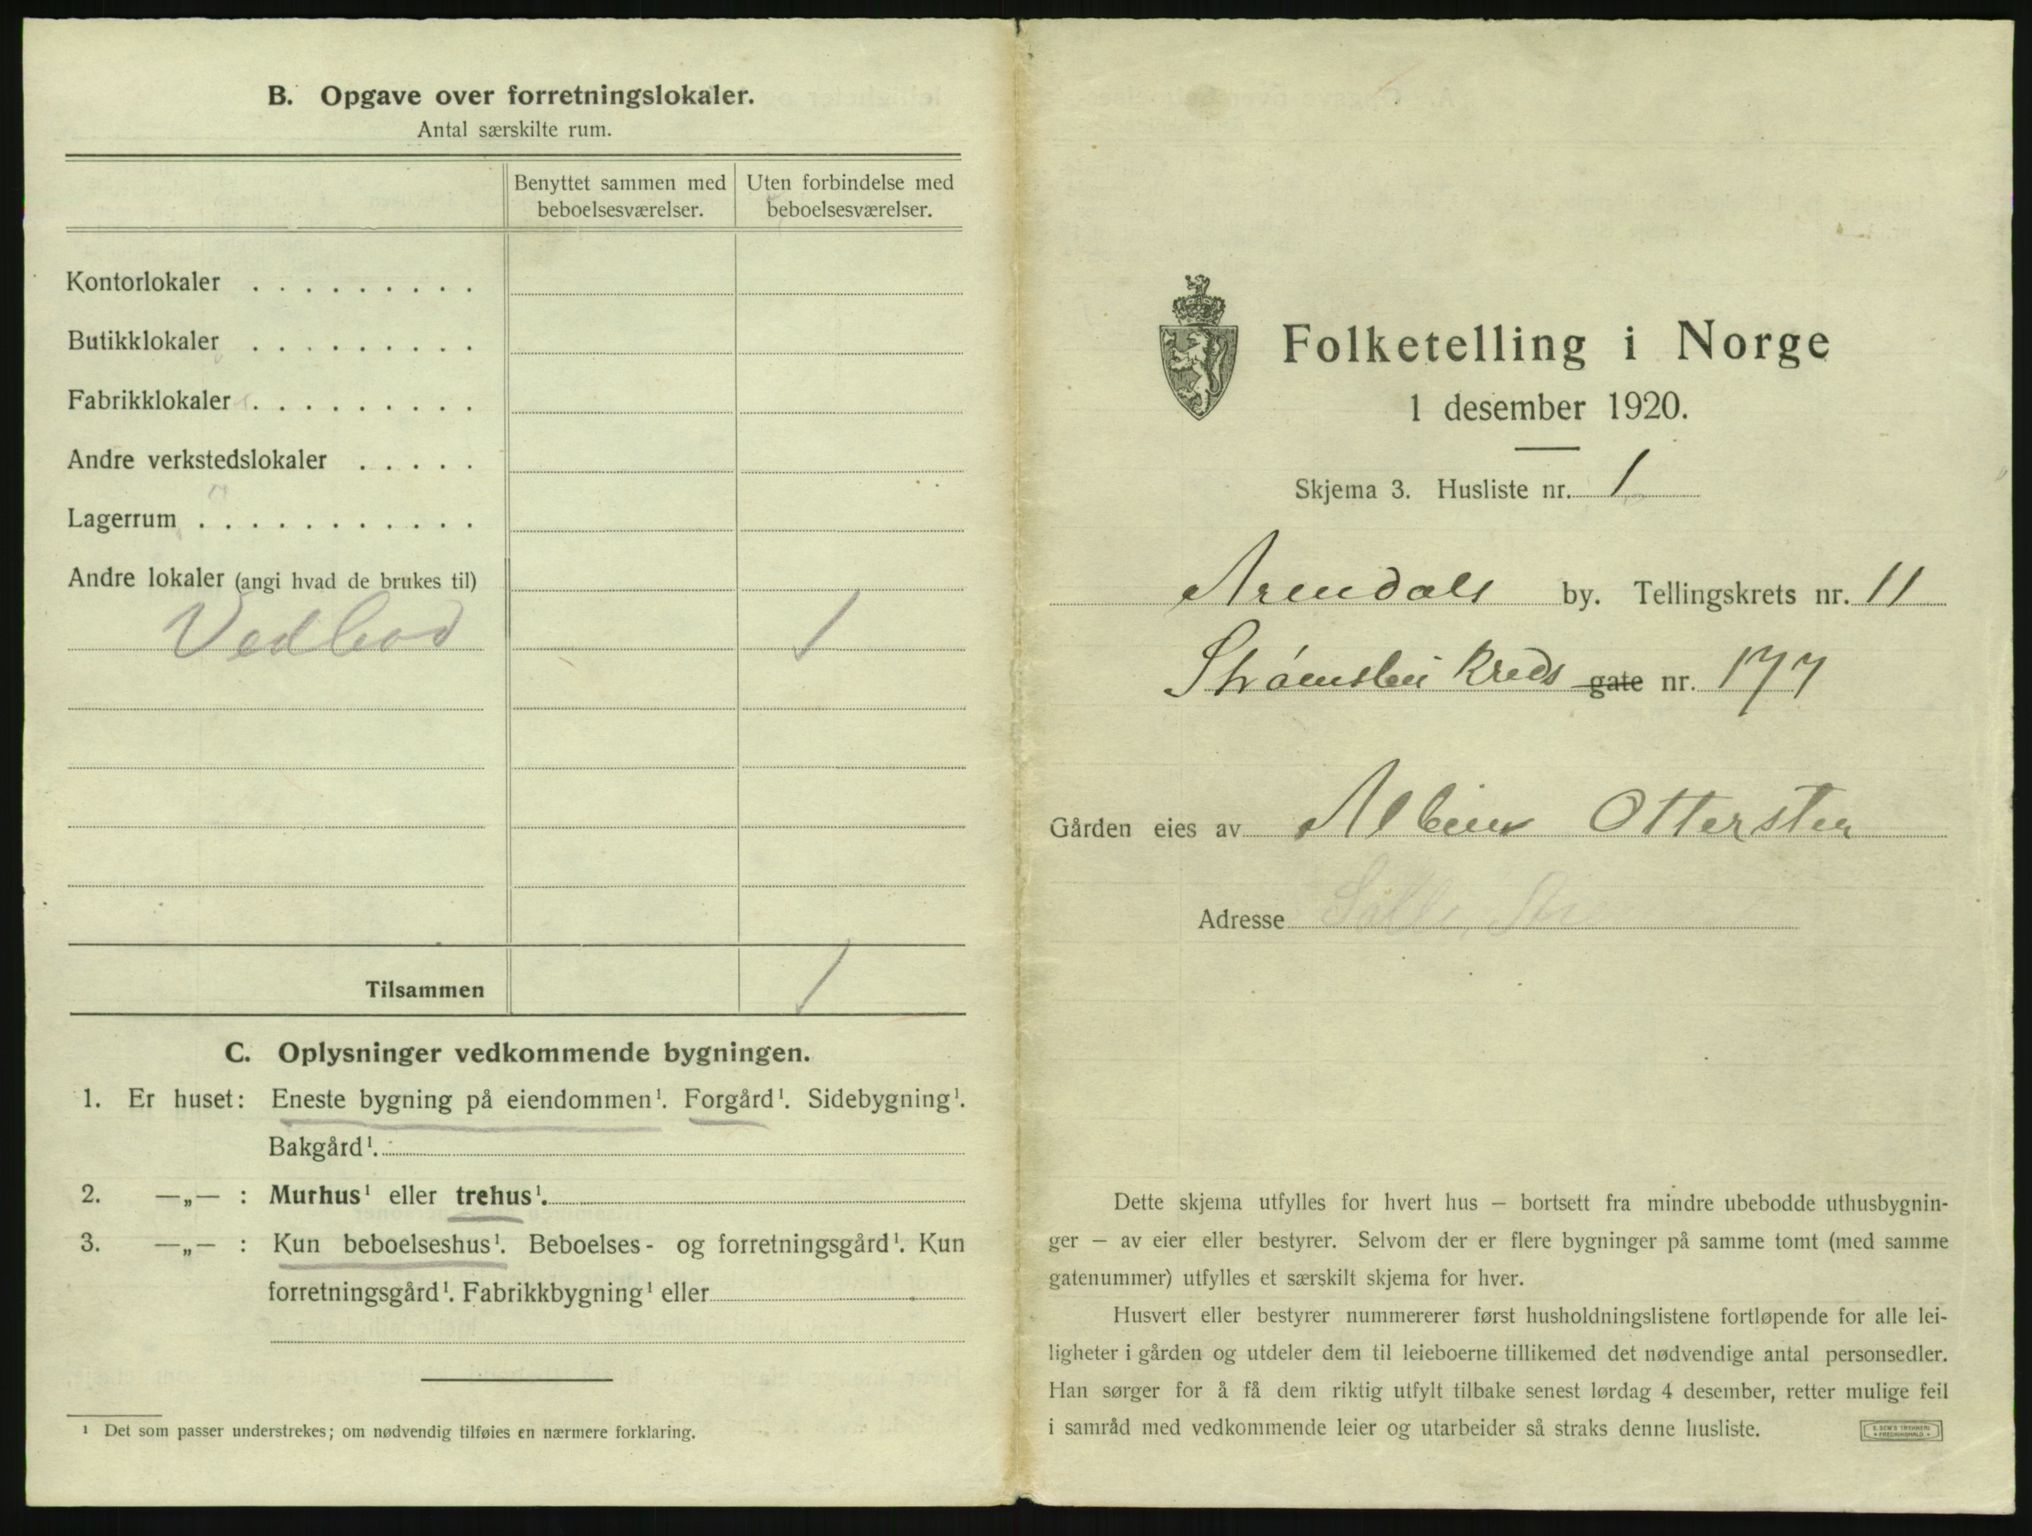 B. Opgave over forretningslokaler.
Antal særskilte rum.
Benyttet sammen med beboelsesværelser.
Uten forbindelse med beboelsesværelser.
Kontorlokaler . . . . . . . . .
Butikklokaler . . . . . . . . .
Fabrikklokaler . . . . . . . . .
Andre verkstedslokaler . . . . .
Lagerrum . . . . . . . . . . .
Andre lokaler (angi hvad de brukes til)
Vedbod 1
Tilsammen 1
C. Oplysninger vedkommende bygningen.
1. Er huset: Eneste bygning på eiendommen¹. Forgård¹. Sidebygning¹.
Bakgård¹.
2. —„— : Murhus¹ eller trehus¹.
3. —„— : Kun beboelseshus¹. Beboelses- og forretningsgård¹. Kun
forretningsgård¹. Fabrikkbygning¹ eller
¹ Det som passer understrekes; om nødvendig tilføies en nærmere forklaring.
Folketelling i Norge
1 desember 1920.
Skjema 3. Husliste nr. 1
Arendals by. Tellingskrets nr. 11
Strømsbu Kreds gate nr. 177
Gården eies av Albin Ottersten
Adresse
Dette skjema utfylles for hvert hus – bortsett fra mindre ubebodde uthusbygnin-
ger – av eier eller bestyrer. Selvom der er flere bygninger på samme tomt (med samme
gatenummer) utfylles et særskilt skjema for hver.
Husvert eller bestyrer nummererer først husholdningslistene fortløpende for alle lei-
ligheter i gården og utdeler dem til leieboerne tillikemed det nødvendige antal personsedler.
Han sørger for å få dem riktig utfylt tilbake senest lørdag 4 desember, retter mulige feil
i samråd med vedkommende leier og utarbeider så straks denne husliste.